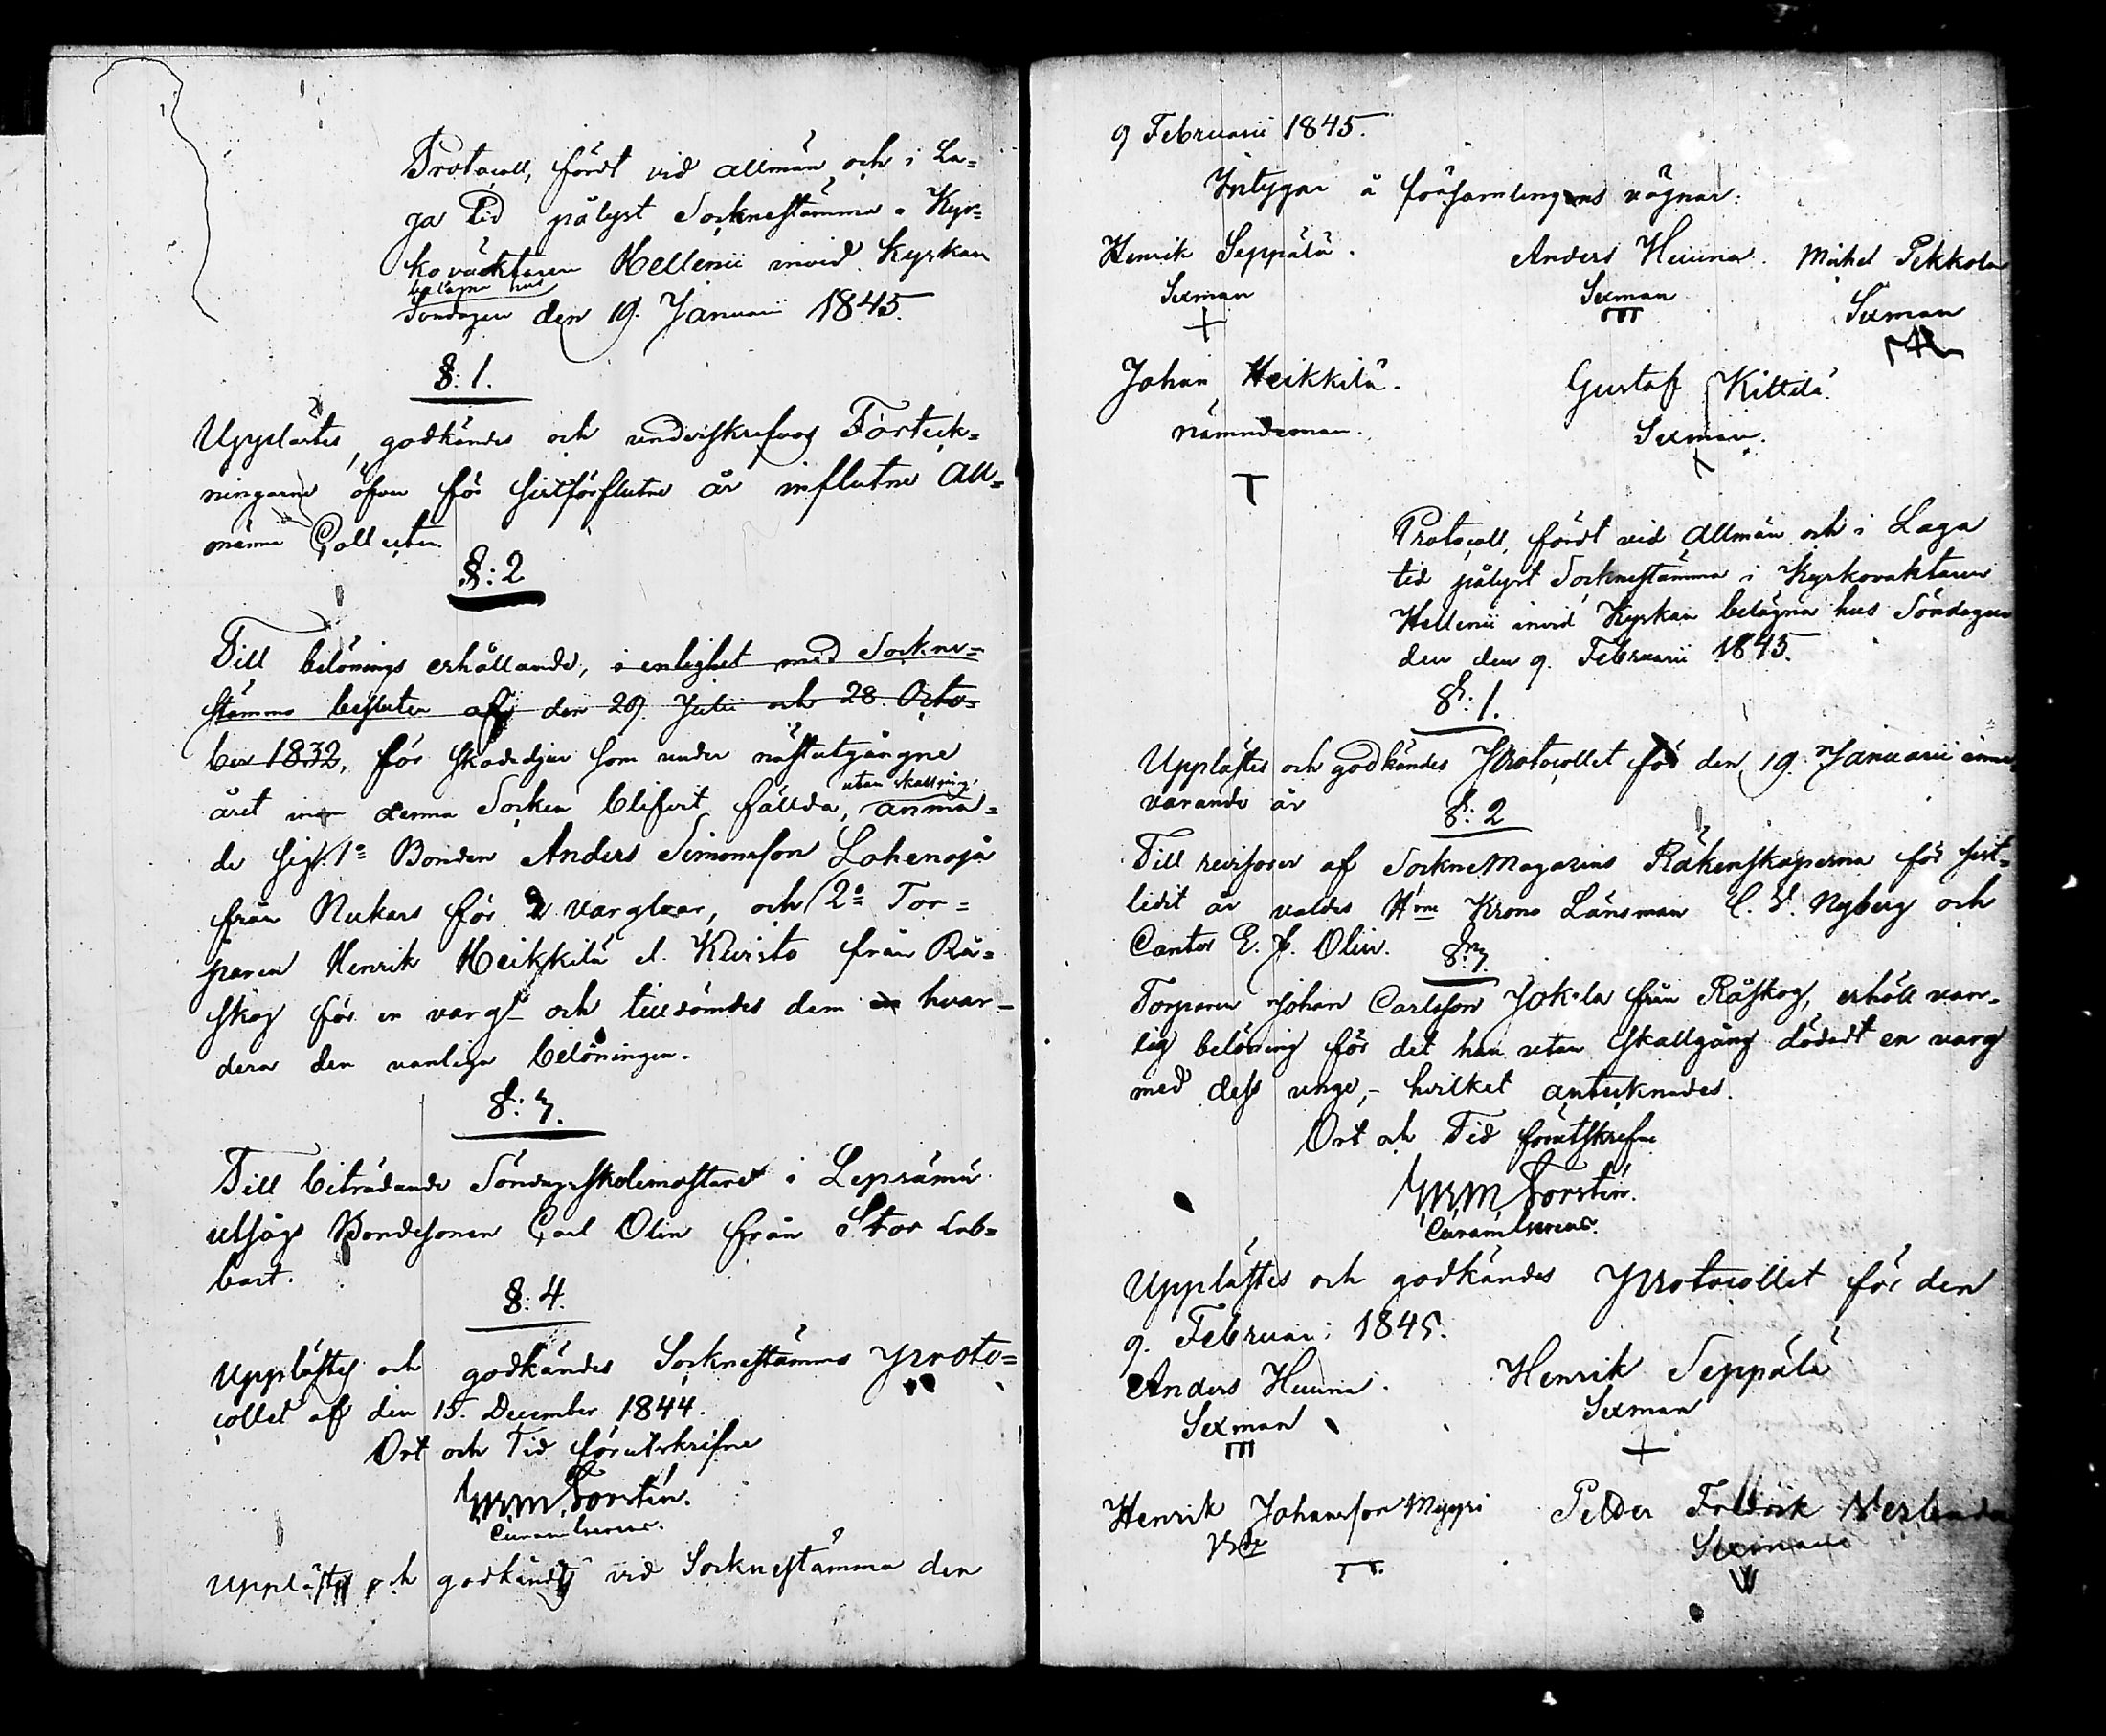 Protocoll, fördt vid allmän och i La=
ga Tid pålyst Socknestämma i Kyr=
kováktaren Hellenii invid Kyrkan
belägna hus
Söndagen den 19. Januarii 1845.
§: 1.
Upplästes, godkändes och underskrefvos Förteck=
ningarne öfver för sistförflutne år influtne All=
männa Collecter.
§: 2
Till belönings erhållande, i enlighet med Sockne=
stämmo besluten af den 29. Julii och 28. Octo=
ber 1832, för skadedjur som under nästutgångne
utan skallgång
året inom denna Socken blifvit fällda, anmä=
de sig: 1º Bonden Anders Simonsson Lohenoja
från Nukars för 2 vargloar, och 2º Tor=
paren Henrik Heikkilä el. Kivistö från Rå=
skog för en varg och tilldömdes dem hvar=
dera den vanliga belöningen.
§: 3.
Till biträdande Söndagsskolemästare i Lepsämä
utsågs Bondesonen Carl Olin från Stor Lab=
bart.
§: 4.
Upplästes och godkändes Socknestämmo Proto=
collet af den 15. December 1844.
Ort och Tid förutskrifne
Forstén.
Upplästes och godkändes vid Socknestämma den
9 Februarii 1845.
Intygar å församlingens vägnar:
Henrik Seppälä. Anders Heiina. Michel Pekkola
Sexman Sexman Sexman
Johan Heikkilä. Gustaf Kittilä.
nämndeman. Sexman.
Protocoll, fördt vid Allmän och i Laga
tid pålyst Socknestämma i Kyrkovaktaren
Hellenii invid Kyrkan belägna hus Söndagen
den den 9. Februarii 1845.
§: 1.
Upplästes och godkändes Protocollet för den 19. Januarii inne=
varande år
§: 2
Till revisorer af SockneMagazins Räkenskaperna för sist=
lidit år valdes Hrne Krono Länsman C. V. Nyberg och
Cantor E. J. Olin.
§: 3.
Torparen Johan Carlsson Jokela från Råskog, erhöll van=
lig belöning för det han utan skallgång dödadt en varg
med dess unge,- hvilket antecknades.
Ort och Tid förutskrefne
Forstén.
Upplästes och godkändes Protocollet för den
9. Februari 1845.
Anders Heiina. Henrik Seppälä
Sexman Sexman
Henrik Johansson Myyri Petter Fredrik
Sexman